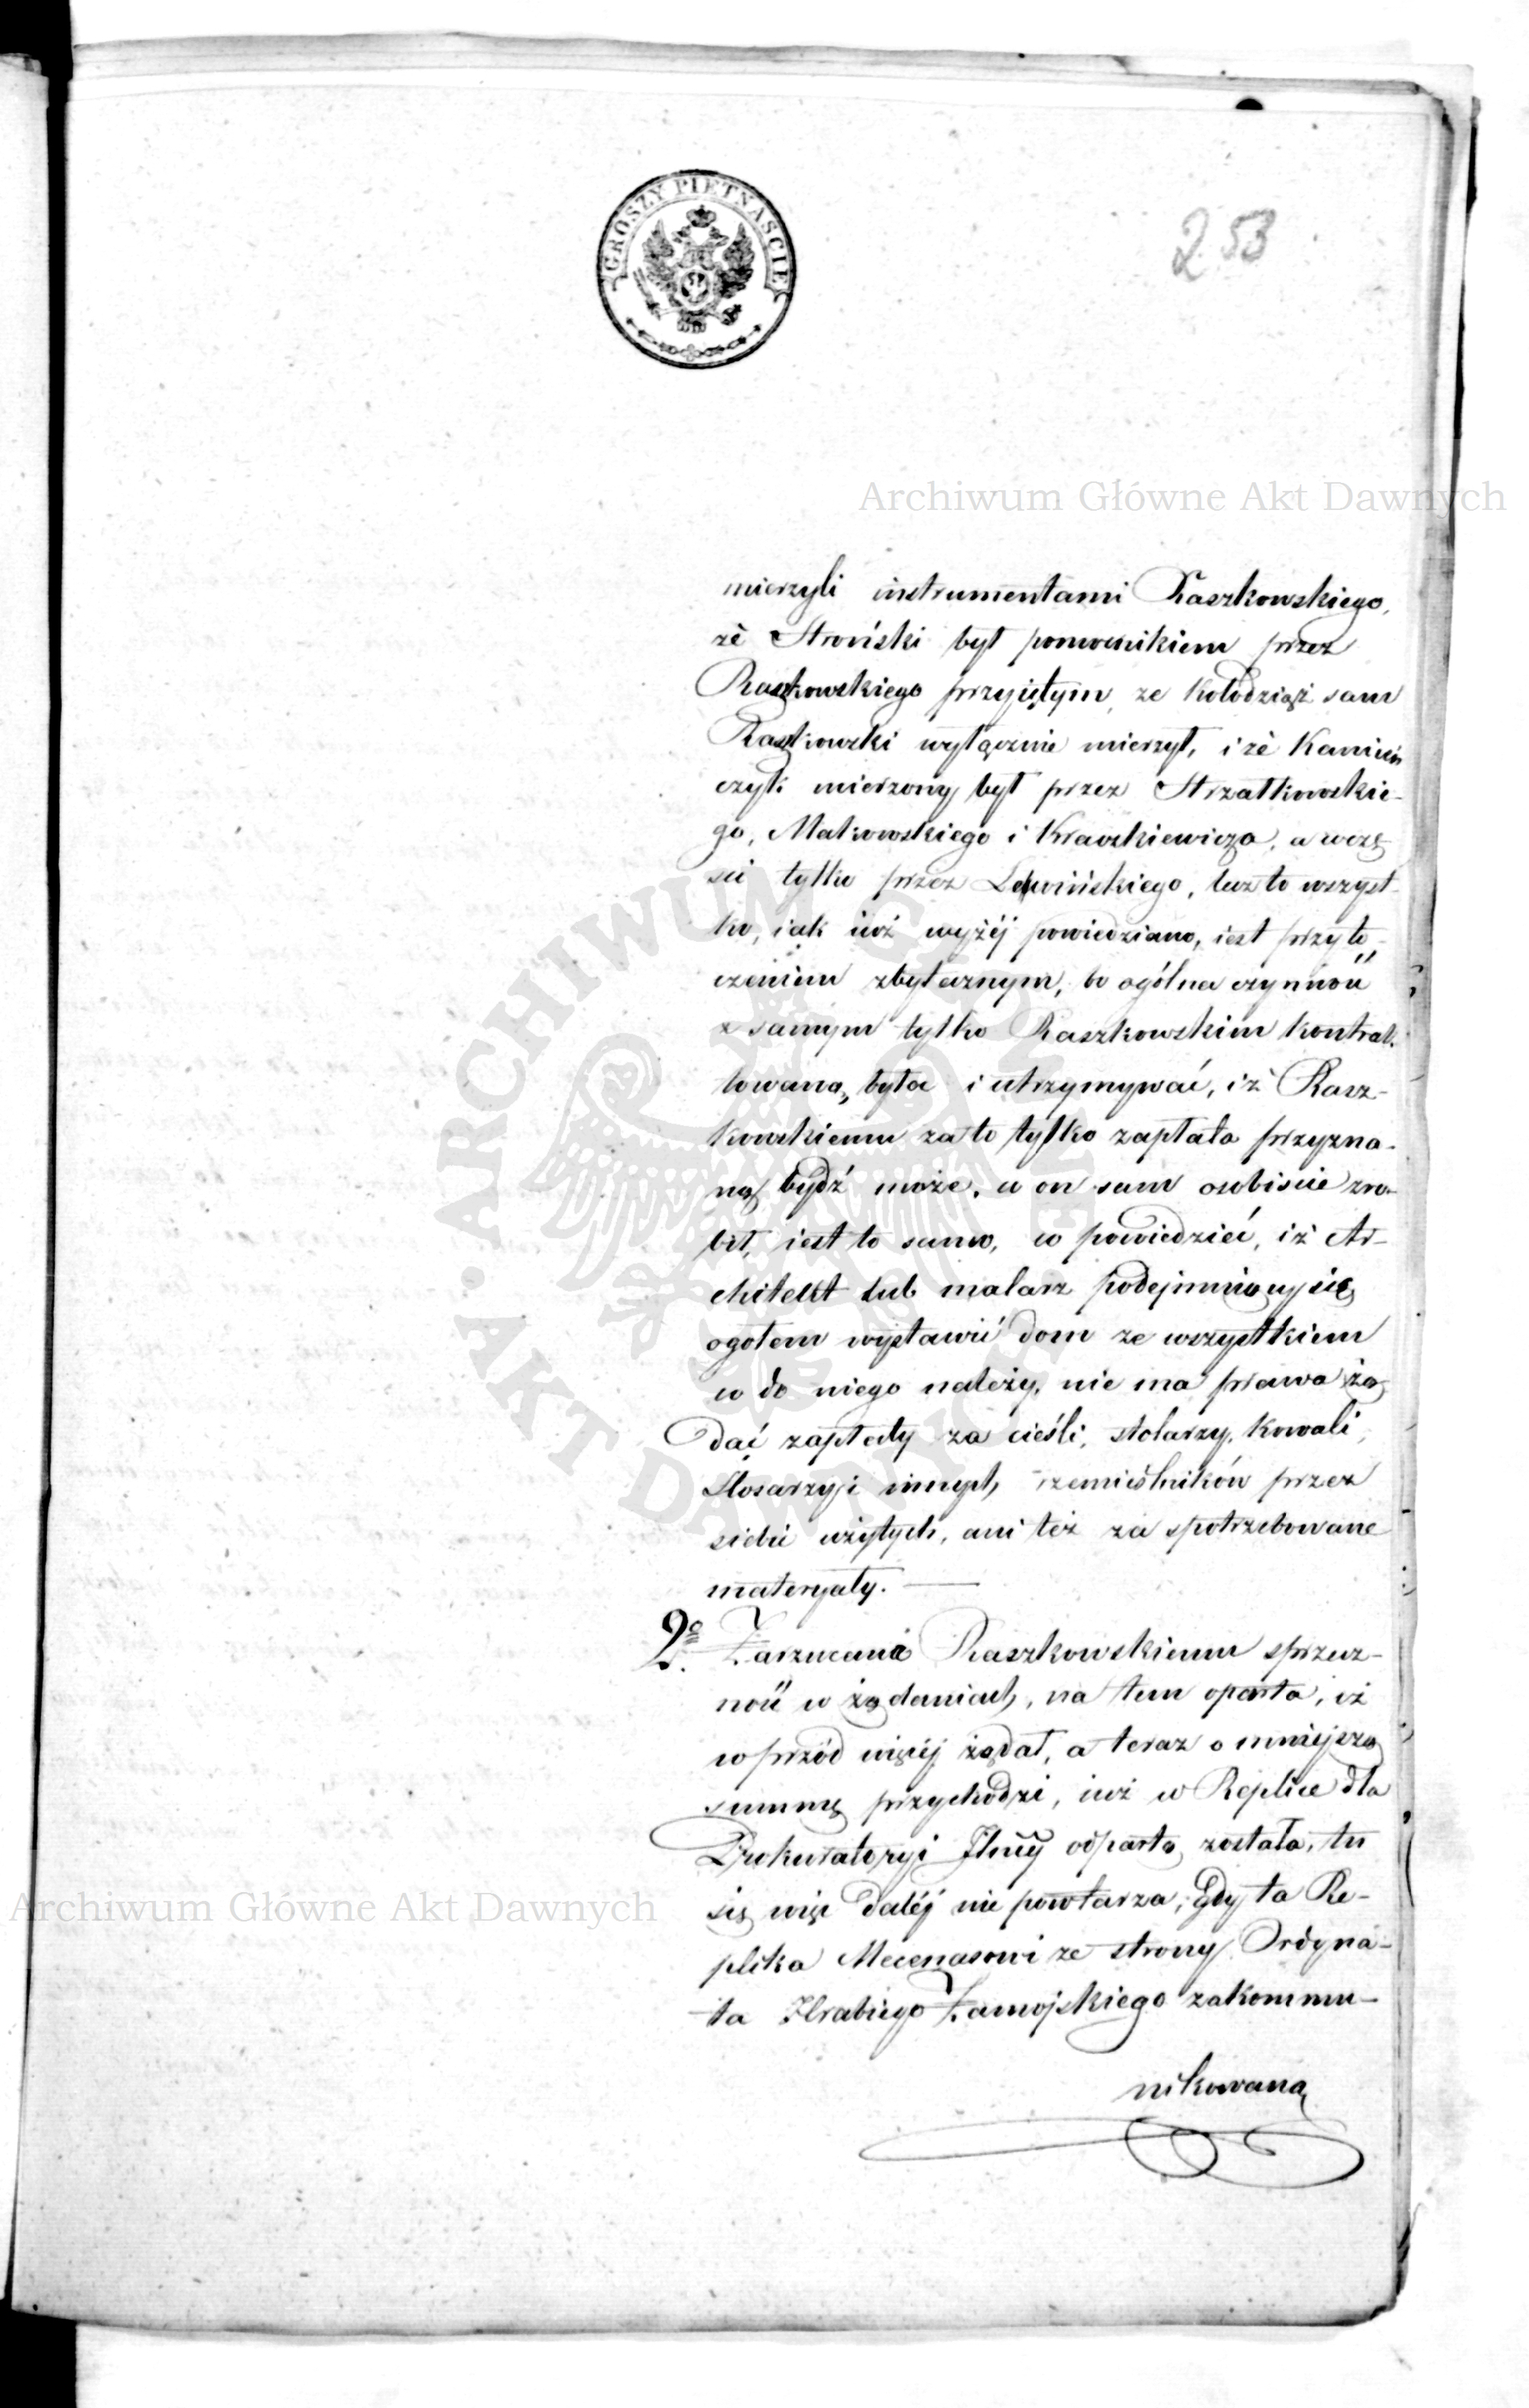 GROSZY PIETNAŚCIE
253
Archiwum Główne Akt Dawnych
mierzyli instrumentami Raszkowskiego,
że Stroński był pomocnikiem przez
Raszkowskiego przyiętym, ze Kołodziąż sam
Raszkowski wyłącznie mierzył, i że Kamień
czyk mierzony był przez Strzałkowskie-
go, Makowskiego i Kraszkiewicza, a wczę
ści tylko przez Lewińskiego, lecz to wszyst-
ko, iak iuż wyżéj powiedziano, iest przyto-
czeniem zbytecznym, bo ogólna czynność
z samym tylko Raszkowskim kontrak-
towaną była i utrzymywać, iż Rasz-
kowskiemu za to tylko zapłata przyzna-
ną bydź może, co on sam osobiście zro-
bił, iest to samo, co powiedzieć, iż Ar-
chitekt lub malarz podejmuiący się
ogółem wystawić dom ze wszystkiem
co do niego należy, nie ma prawa żą
dać zapłaty za cieśli, stolarzy, kowali,
Slosarzy i innych rzemieślników przez
siebie użytych, ani też za spotrzebowane
materyały.
2o. Zarzucana Raszkowskiemu sprzecz-
ność w żądaniach, na tem oparta, iż
wprzód więcéj żądał, a teraz o mniejszą
summę przychodzi, iuż w Replice dla
Prokuratoryi Jlnéy odpartą została, tu
się więc daléj nie powtarza; Gdy ta Re-
plika Mecenasowi ze strony Ordyna-
ta Hrabiego Zamojskiego zakommu-
nikowaną
Archiwum Główne Akt Dawnych
ARCHIWUM GŁÓWNE AKT DAWNYCH